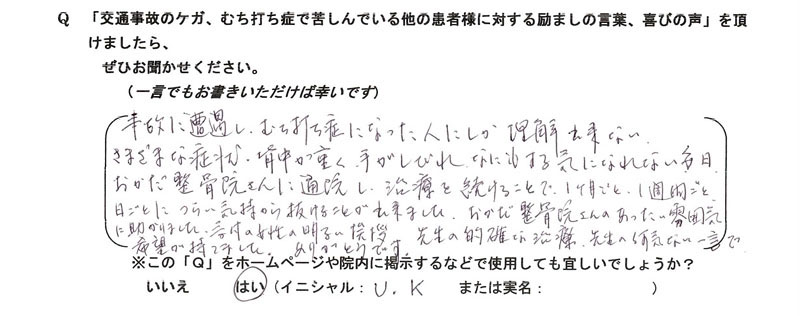 Q 「交通事故のケガ、むち打ち症で苦しんでいる他の患者様に対する励ましの言葉、喜びの声」を頂
けましたら、
ぜひお聞かせください。
(一言でもお書きいただけば幸いです)
事故に遭遇し、むち打ち症になった人にしか理解出来ない
さまざまな症状、背中が重く、手がしびれ、なにもする気になれない毎日
おかだ整骨院さんに通院し、治療を続けることで、1ヶ月ごと、1週間ごと
日ごとにつらい気持から抜けることが出来ました。おかだ整骨院さんのあったい雰囲気
に助かりました。受付の女性の明るい挨拶、先生の的確な治療、先生の何気ない一言で
希望が持てました。ありがとうです
※この「Q」をホームページや院内に掲示するなどで使用しても宜しいでしょうか？
いいえ はい (イニシャル： U.K または実名： )